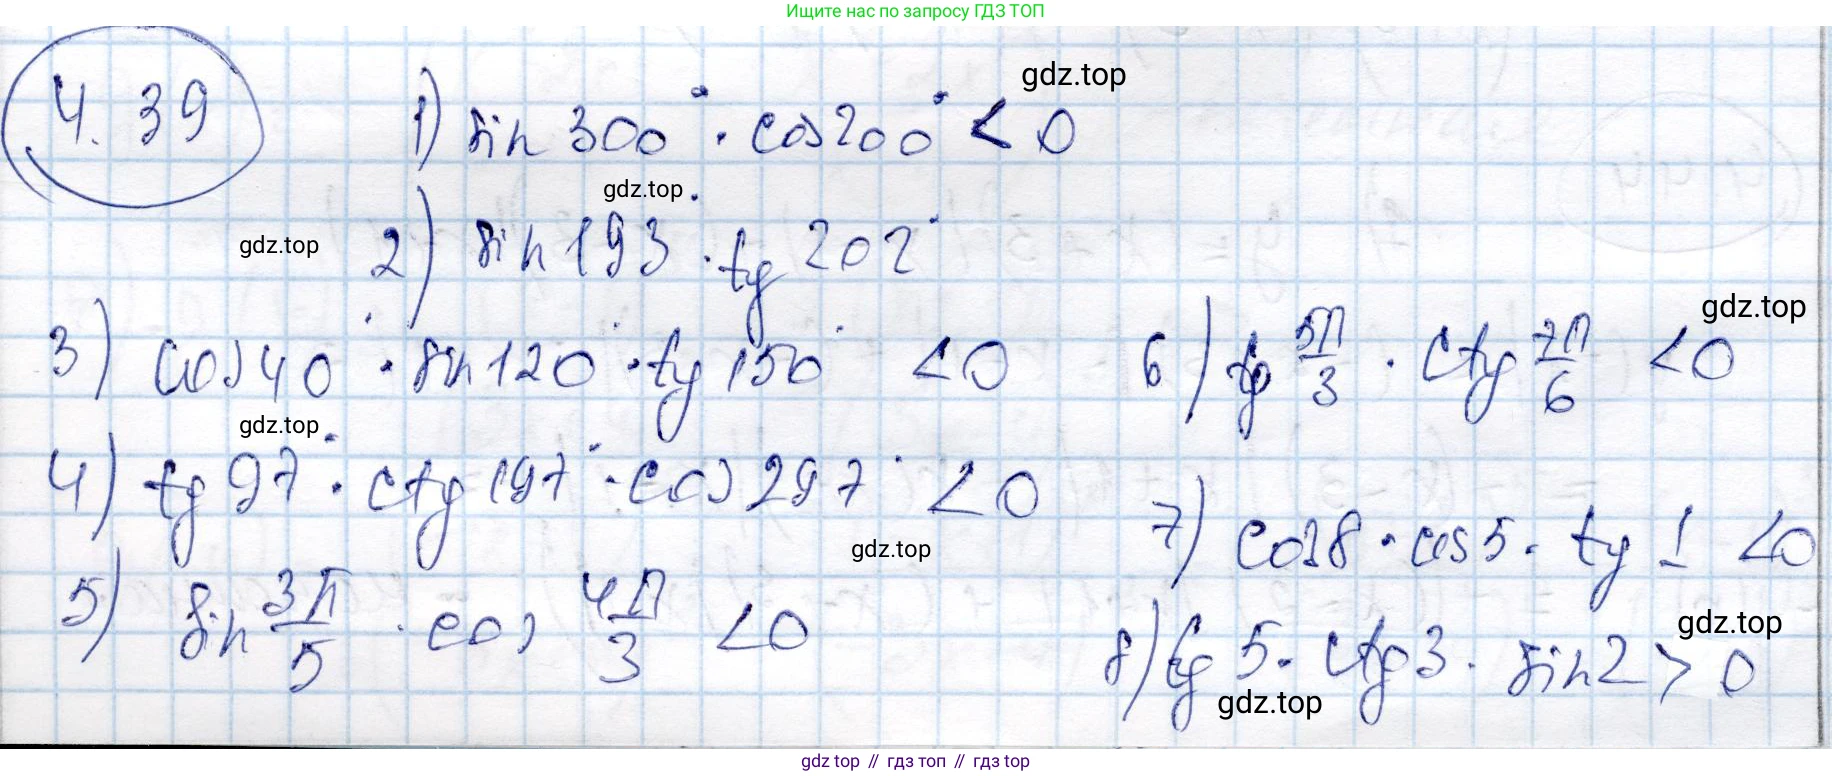 Ищите нас по запросу ГДЗ ТОП
4.39
1) sin 300° · cos 200° < 0
gdz.top
2) sin 193° · tg 202°
gdz.top
gdz.top
3) cos 40° · sin 120° · tg 150° < 0
6) tg 5π/3 · ctg 7π/6 < 0
gdz.top
4) tg 97° · ctg 197° · cos 297° < 0
gdz.top
7) cos 8 · cos 5 · tg 1 < 0
gdz.top
5) sin 3π/5 · cos 4π/3 < 0
8) tg 5 · ctg 3 · sin 2 > 0
gdz.top
gdz.top
gdz top // гдз топ // гдз top